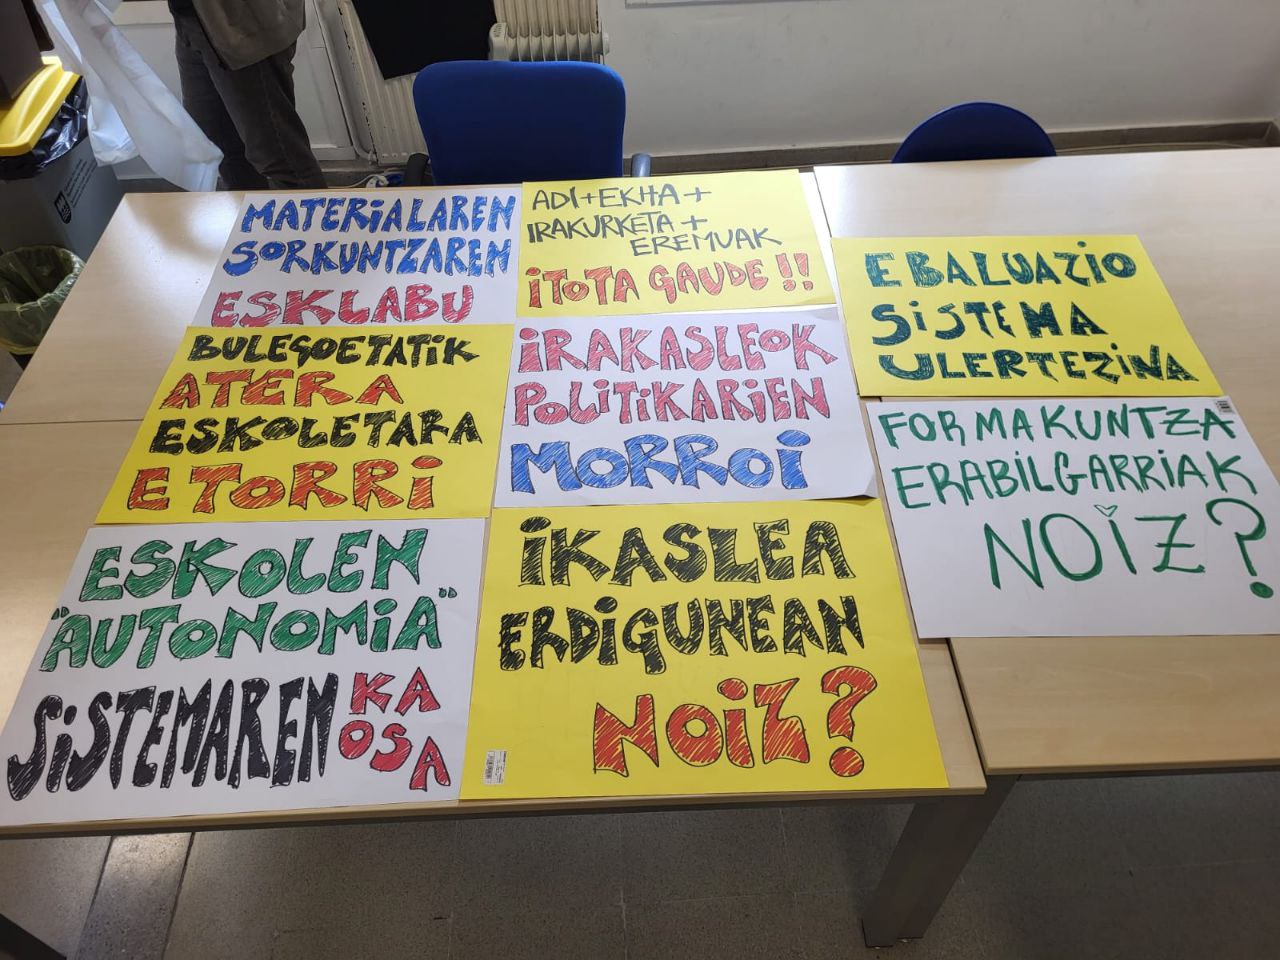 MATERiALAREN
SORKUNTZAREN
ESKLABU
ADI+EKHA+
IRAKURKETA+
EREMUAK
iTOTA GAUDE!!
BULEGOETATiK
ATERA
ESKOLETARA
ETORRi
iRAKASLEOK
POLiTiKARiEN
MORROi
EBALUAZIO
SiSTEMA
ULERTEZINA
FORMAKUNTZA
ERABILGARRIAK
NOiZ?
ESKOLEN
"AUTONOMiA"
SiSTEMAREN
KA
OSA
iKASLEA
ERDiGUNEAN
NOiZ?